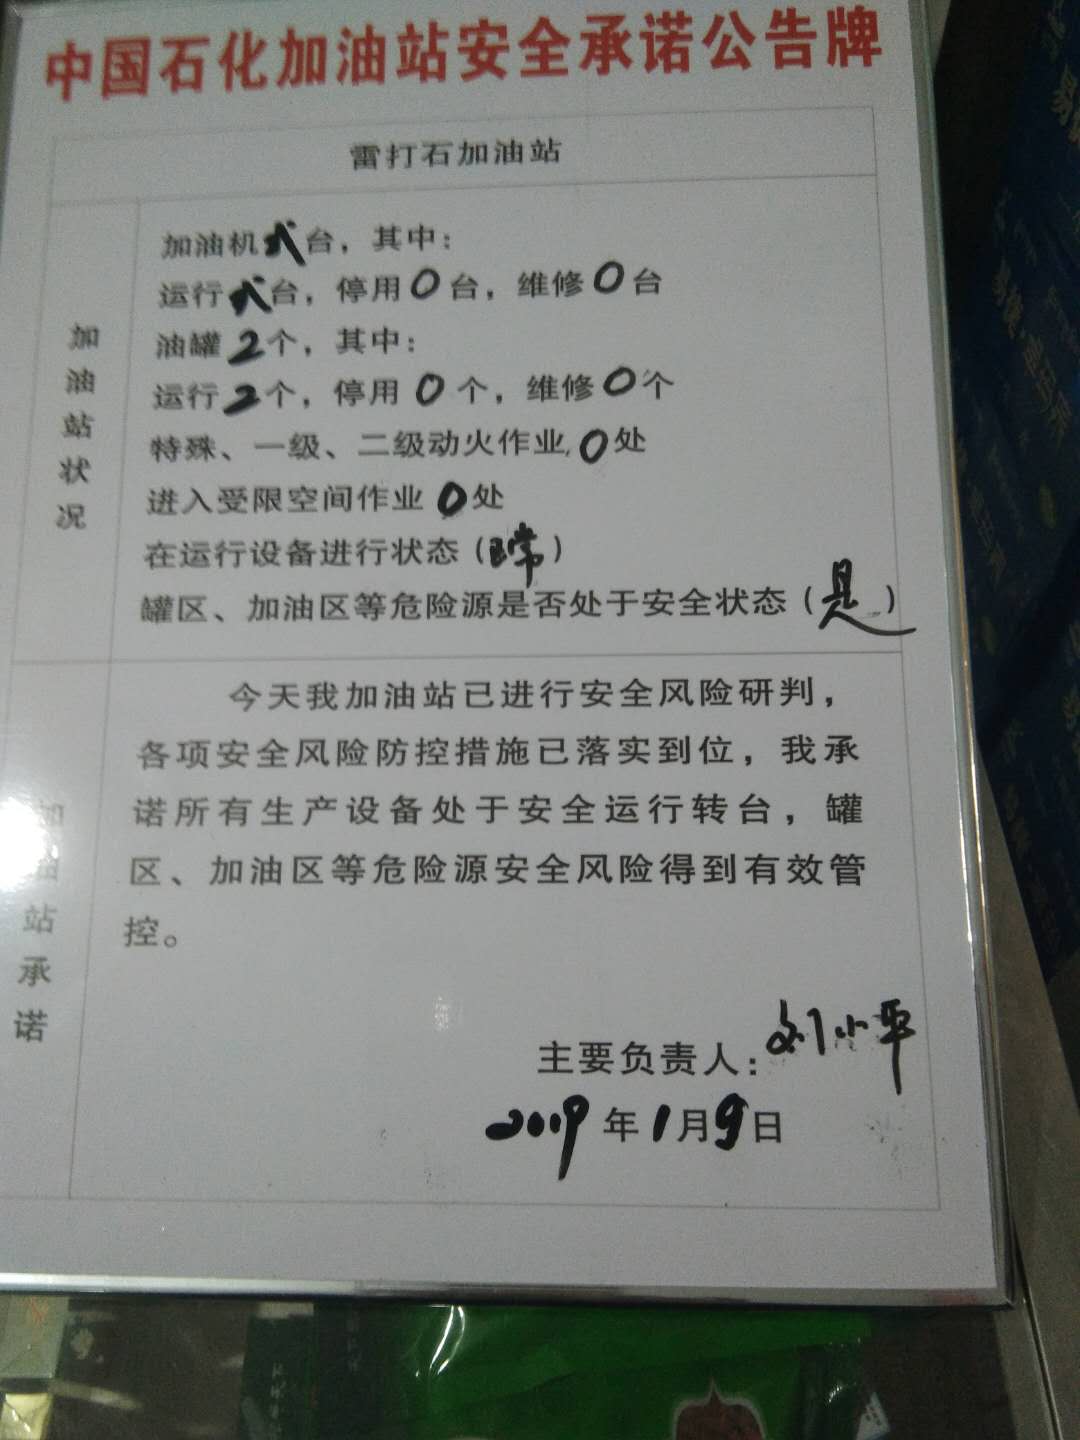 中国石化加油站安全承诺公告牌
雷打石加油站
加油站状况
加油机 台，其中：
运行 台，停用0台，维修0台
油罐2个，其中：
运行2个，停用0个，维修0个
特殊、一级、二级动火作业，0处
进入受限空间作业0处
在运行设备进行状态（ 常）
罐区、加油区等危险源是否处于安全状态（是）
加油站承诺
今天我加油站已进行安全风险研判，
各项安全风险防控措施已落实到位，我承
诺所有生产设备处于安全运行转台，罐
区、加油区等危险源安全风险得到有效管
控。
主要负责人：刘小平
2019年1月9日